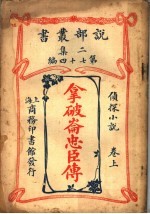 說部叢書
二集
第七十四編
偵探小說 卷上
拿破崙忠臣傳
上海
商務印書館發行